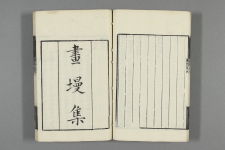 畫墁集